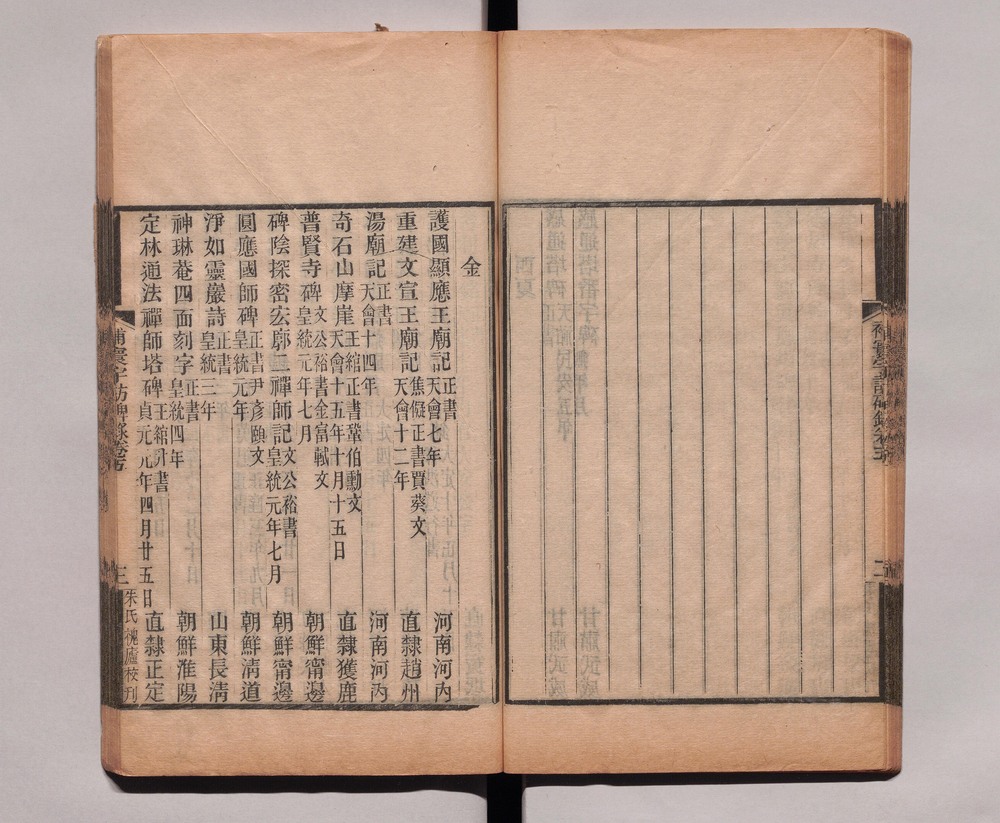 金
護國顯應王廟記 正書 天會七年 河南河內
重建文宣王廟記 焦儗正書賈葵文 天會十二年 直隸趙州
湯廟記 正書 天會十四年 河南河內
奇石山摩崖 王綰正書鞏伯勳文 天會十五年十月十五日 直隸獲鹿
普賢寺碑 文公裕書金富軾文 皇統元年七月 朝鮮甯邊
碑陰探密宏廓二禪師記 文公裕書 皇統元年七月 朝鮮甯邊
圓應國師碑 正書尹彥頤文 皇統元年 朝鮮淸道
淨如靈巖詩 正書 皇統三年 山東長淸
神琳菴四面刻字 正書 皇統四年 朝鮮淮陽
定林通法禪師塔碑 王綰書 貞元元年四月廿五日 直隸正定
補寰宇訪碑錄卷五
三
朱氏槐廬校刊
補寰宇訪碑錄卷五
二